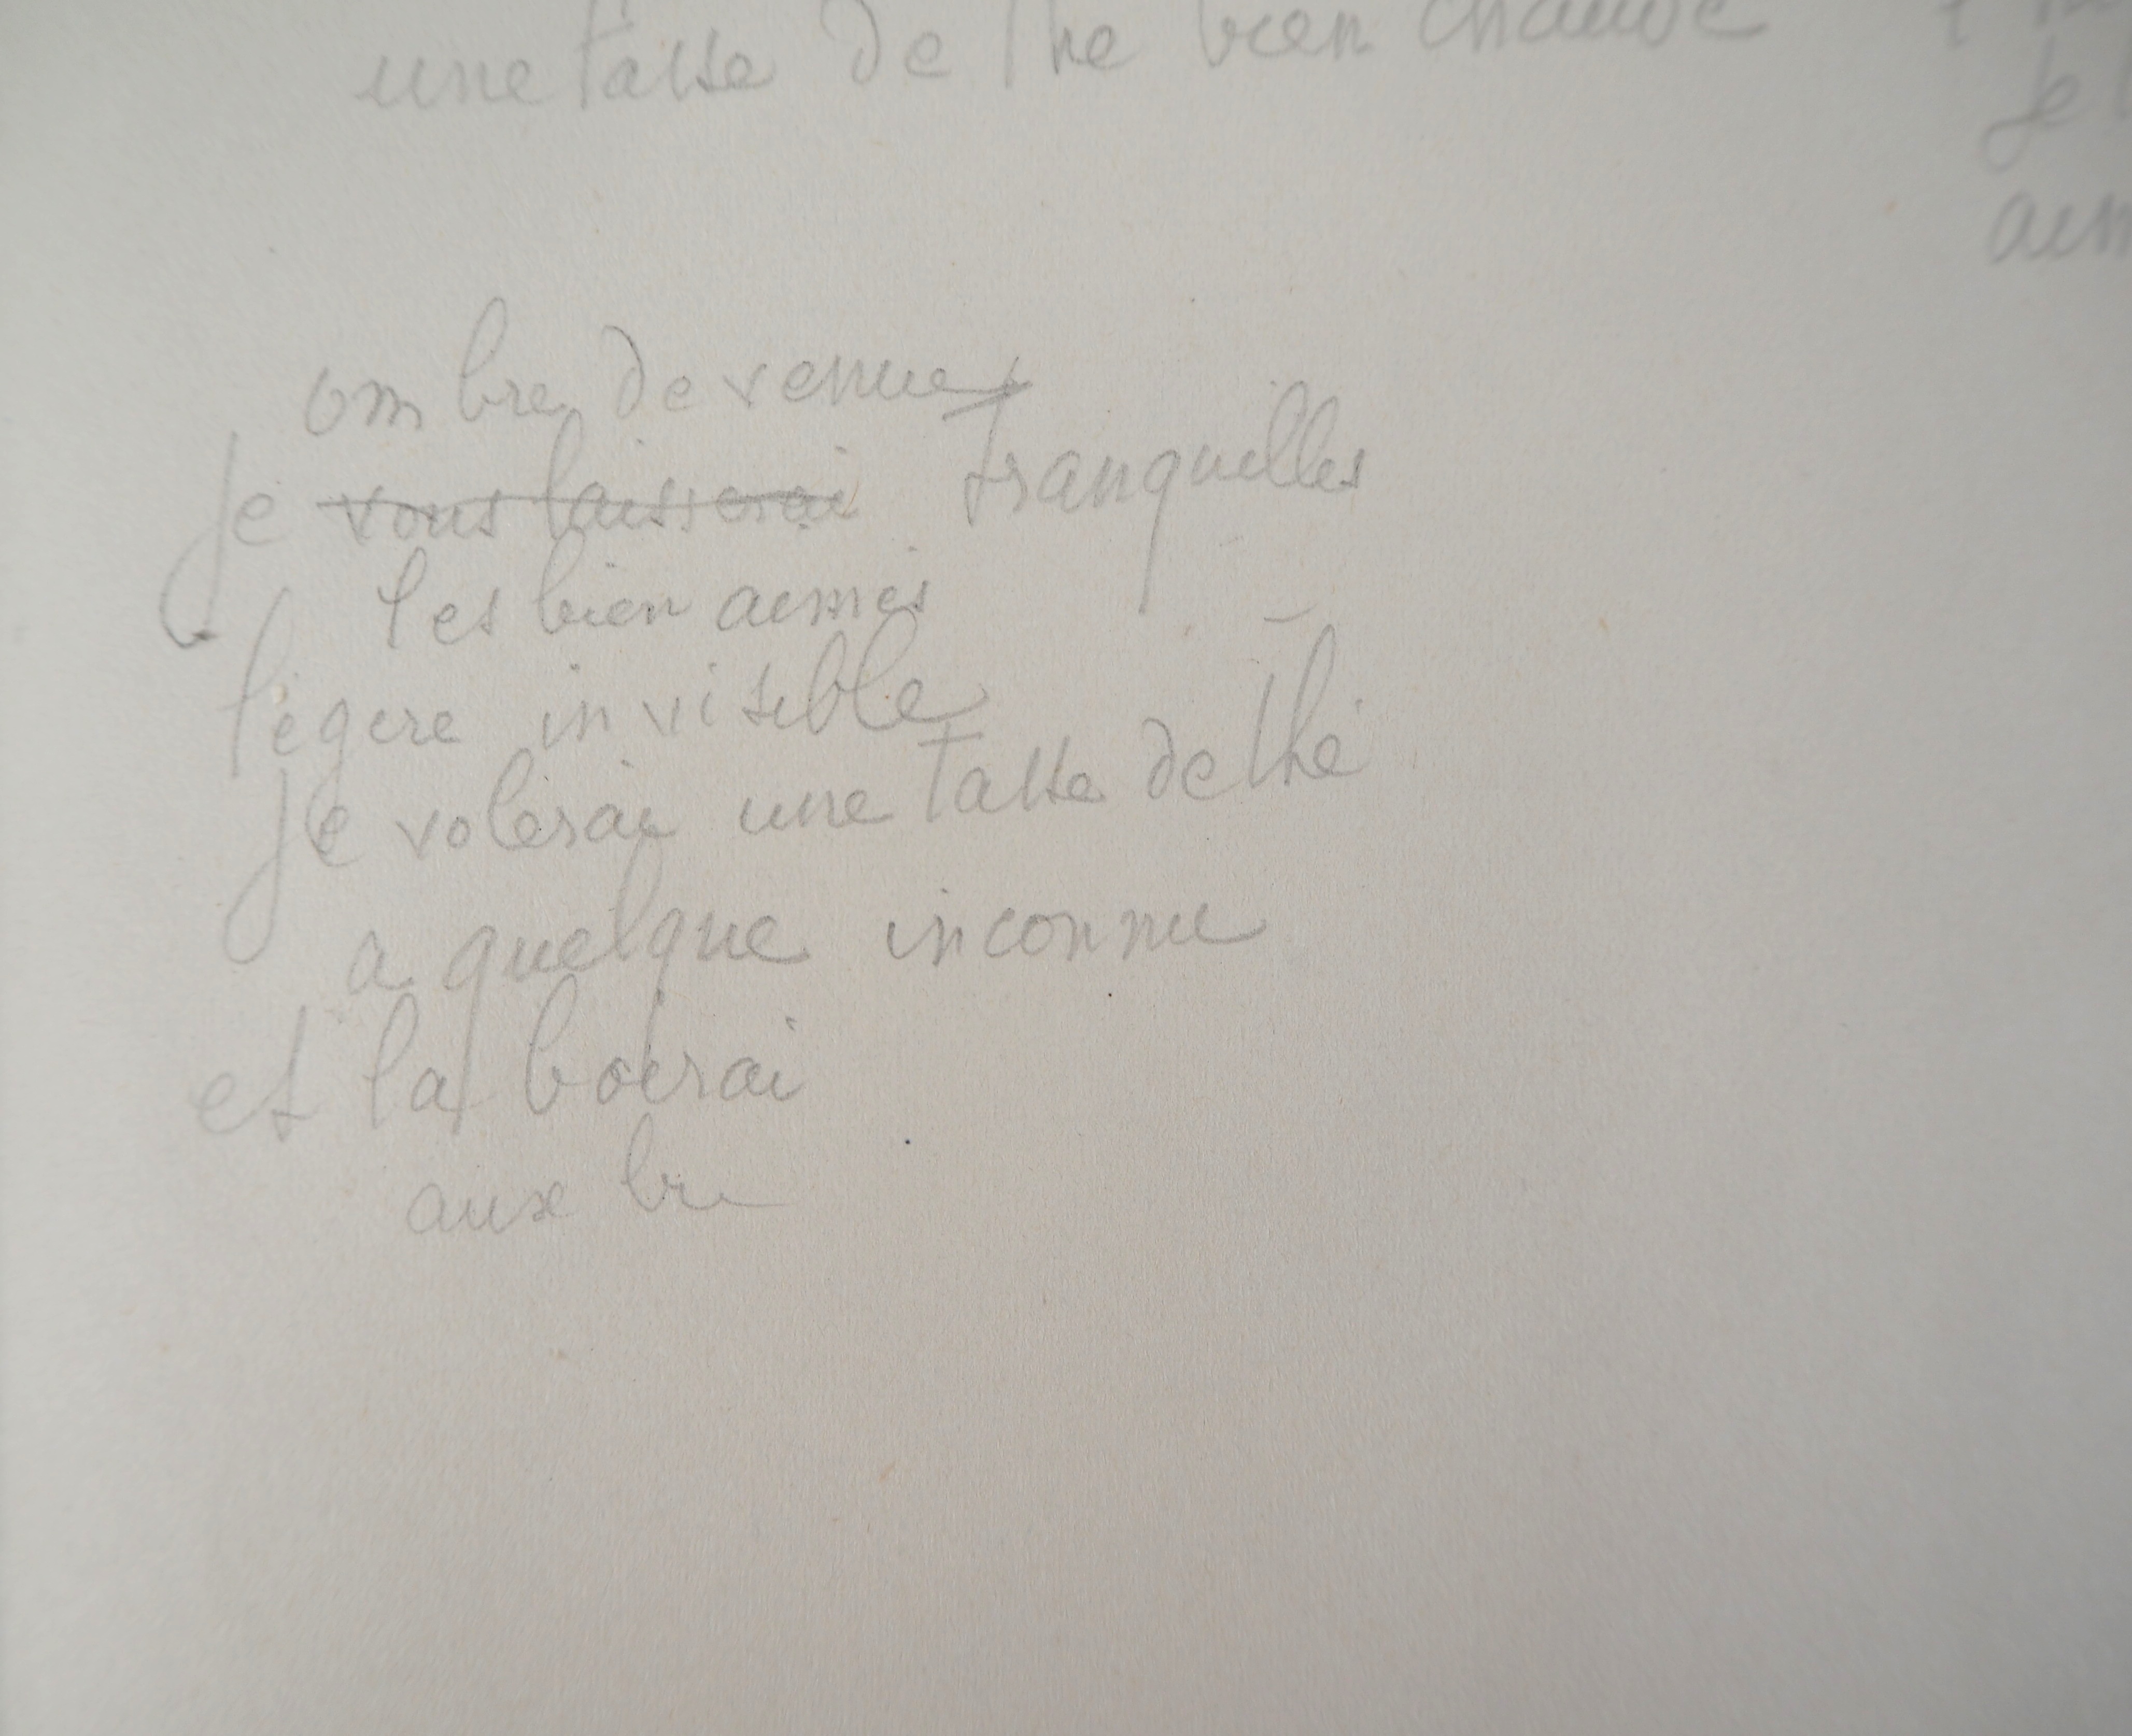 une tasse de thé bien chaude
ombre devenue
Je vous laisserai tranquilles
les bien aimés
légère invisible
Je volerai une tasse de thé
a quelque inconnu
et la boirai
aux
Je